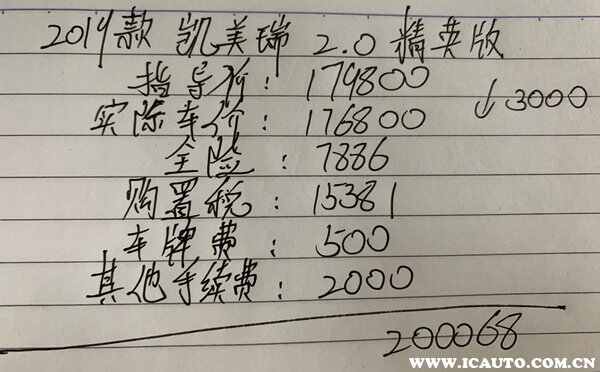 2019款 凯美瑞 2.0 精英版
指导价：179800
↓3000
实际车价：176800
全险：7886
购置税：15381
车牌费：500
其他手续费：2000
200068
WWW.ICAUTO.COM.CN